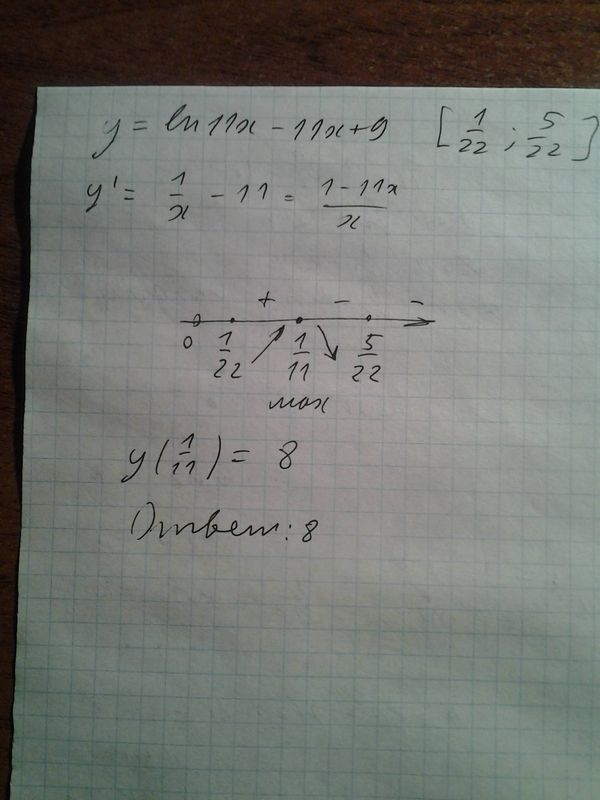 y = ln11x - 11x+9 [1/22 ; 5/22]
y' = 1/x - 11 = (1-11x)/x
+ - -
0 1/22 1/11 5/22
max
y(1/11) = 8
Ответ: 8